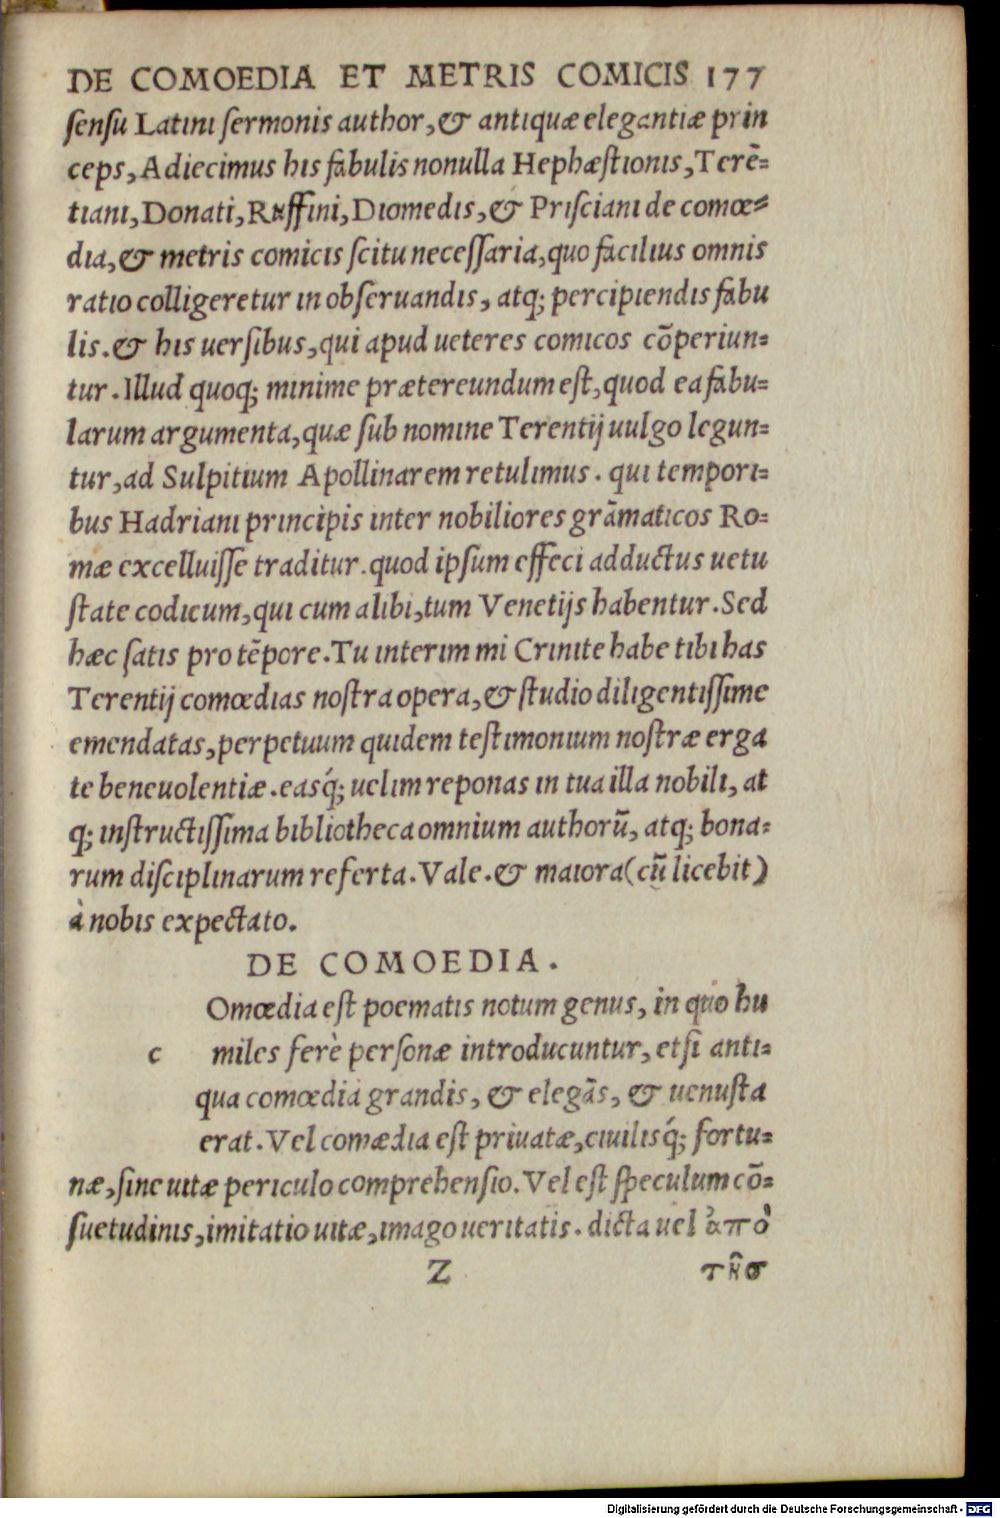 DE COMOEDIA ET METRIS COMICIS 177
ſenſu Latini ſermonis author, & antiquæ elegantiæ prin
ceps, Adiecimus his fabulis nonulla Hephæſtionis, Terē=
tiani, Donati, Ruffini, Diomedis, & Priſciani de comœ=
dia, & metris comicis ſcitu neceſſaria, quo facilius omnis
ratio colligeretur in obſeruandis, atq; percipiendis fabu
lis. & his uerſibus, qui apud ueteres comicos cōperiun=
tur. Illud quoq; minime prætereundum eſt, quod ea fabu=
larum argumenta, quæ ſub nomine Terentij uulgo legun=
tur, ad Sulpitium Apollinarem retulimus. qui tempori=
bus Hadriani principis inter nobiliores grāmaticos Ro=
mæ excelluiſſe traditur. quod ipſum effeci adductus uetu
ſtate codicum, qui cum alibi, tum Venetijs habentur. Sed
hæc ſatis pro tēpore. Tu interim mi Crinite habe tibi has
Terentij comœdias noſtra opera, & ſtudio diligentiſſime
emendatas, perpetuum quidem teſtimonium noſtræ erga
te beneuolentiæ. easq́; uelim reponas in tua illa nobili, at
q; inſtructiſſima bibliotheca omnium authorū, atq; bona=
rum diſciplinarum referta. Vale. & maiora (cū licebit)
à nobis expectato.
DE COMOEDIA.
Omœdia eſt poematis notum genus, in quo hu
c miles ferè perſonæ introducuntur, etſi anti=
qua comœdia grandis, & elegās, & uenuſta
erat. Vel comædia eſt priuatæ, ciuilisq́; fortu=
næ, ſine uitæ periculo comprehenſio. Vel eſt ſpeculum cō=
ſuetudinis, imitatio uitæ, imago ueritatis. dicta uel ἀπὸ
Z τῆσ
Digitalisierung gefördert durch die Deutsche Forschungsgemeinschaft - DFG